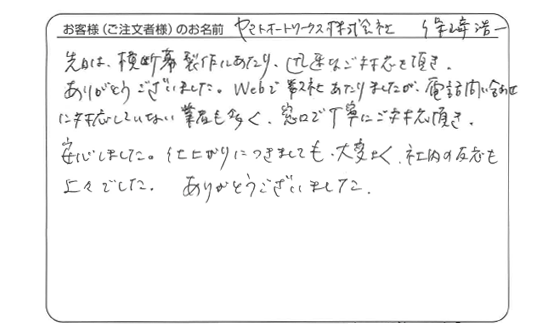 お客様（ご注文者様）のお名前 ヤマトオートワークス株式会社 篠崎浩一
先日は、横断幕製作にあたり、迅速なご対応を頂き、
ありがとうございました。Webで数社あたりましたが、電話問い合わせ
に対応していない業者も多く、窓口で丁寧にご対応頂き、
安心しました。仕上がりにつきましても、大変よく、社内の反応も
上々でした。 ありがとうございました。